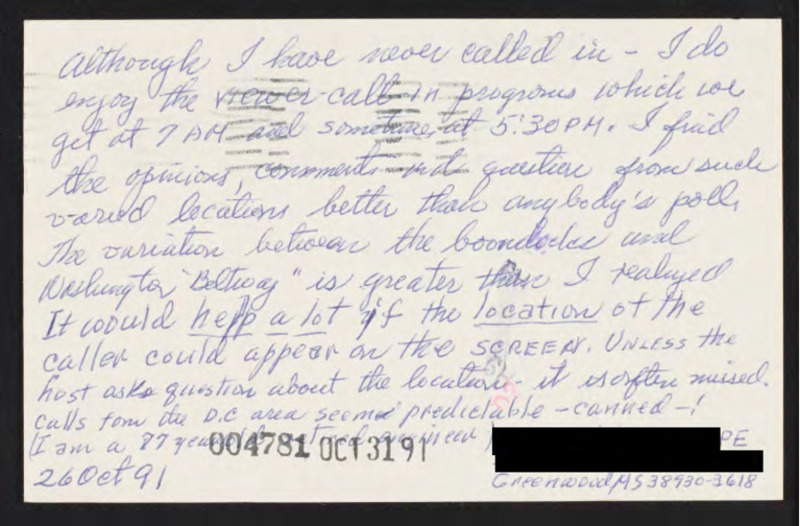 Although I have never called in - I do
enjoy the viewer-call in programs which we
get at 7 AM and sometimes at 5:30 PM. I find
the opinions, comments and question from such
varied locations better than anybody's poll.
The variation between the boondocks and
Washington "Beltway" is greater than I realized
It would help a lot if the location of the
caller could appear on the SCREEN. UNLESS the
host asks question about the location - it is often missed.
Calls fom the D.C area seemed predictable - canned - !
(I am a 87 year old retired engineer PE
004781 OCT 31 91
26 Oct 91
Greenwood MS 38930-3618